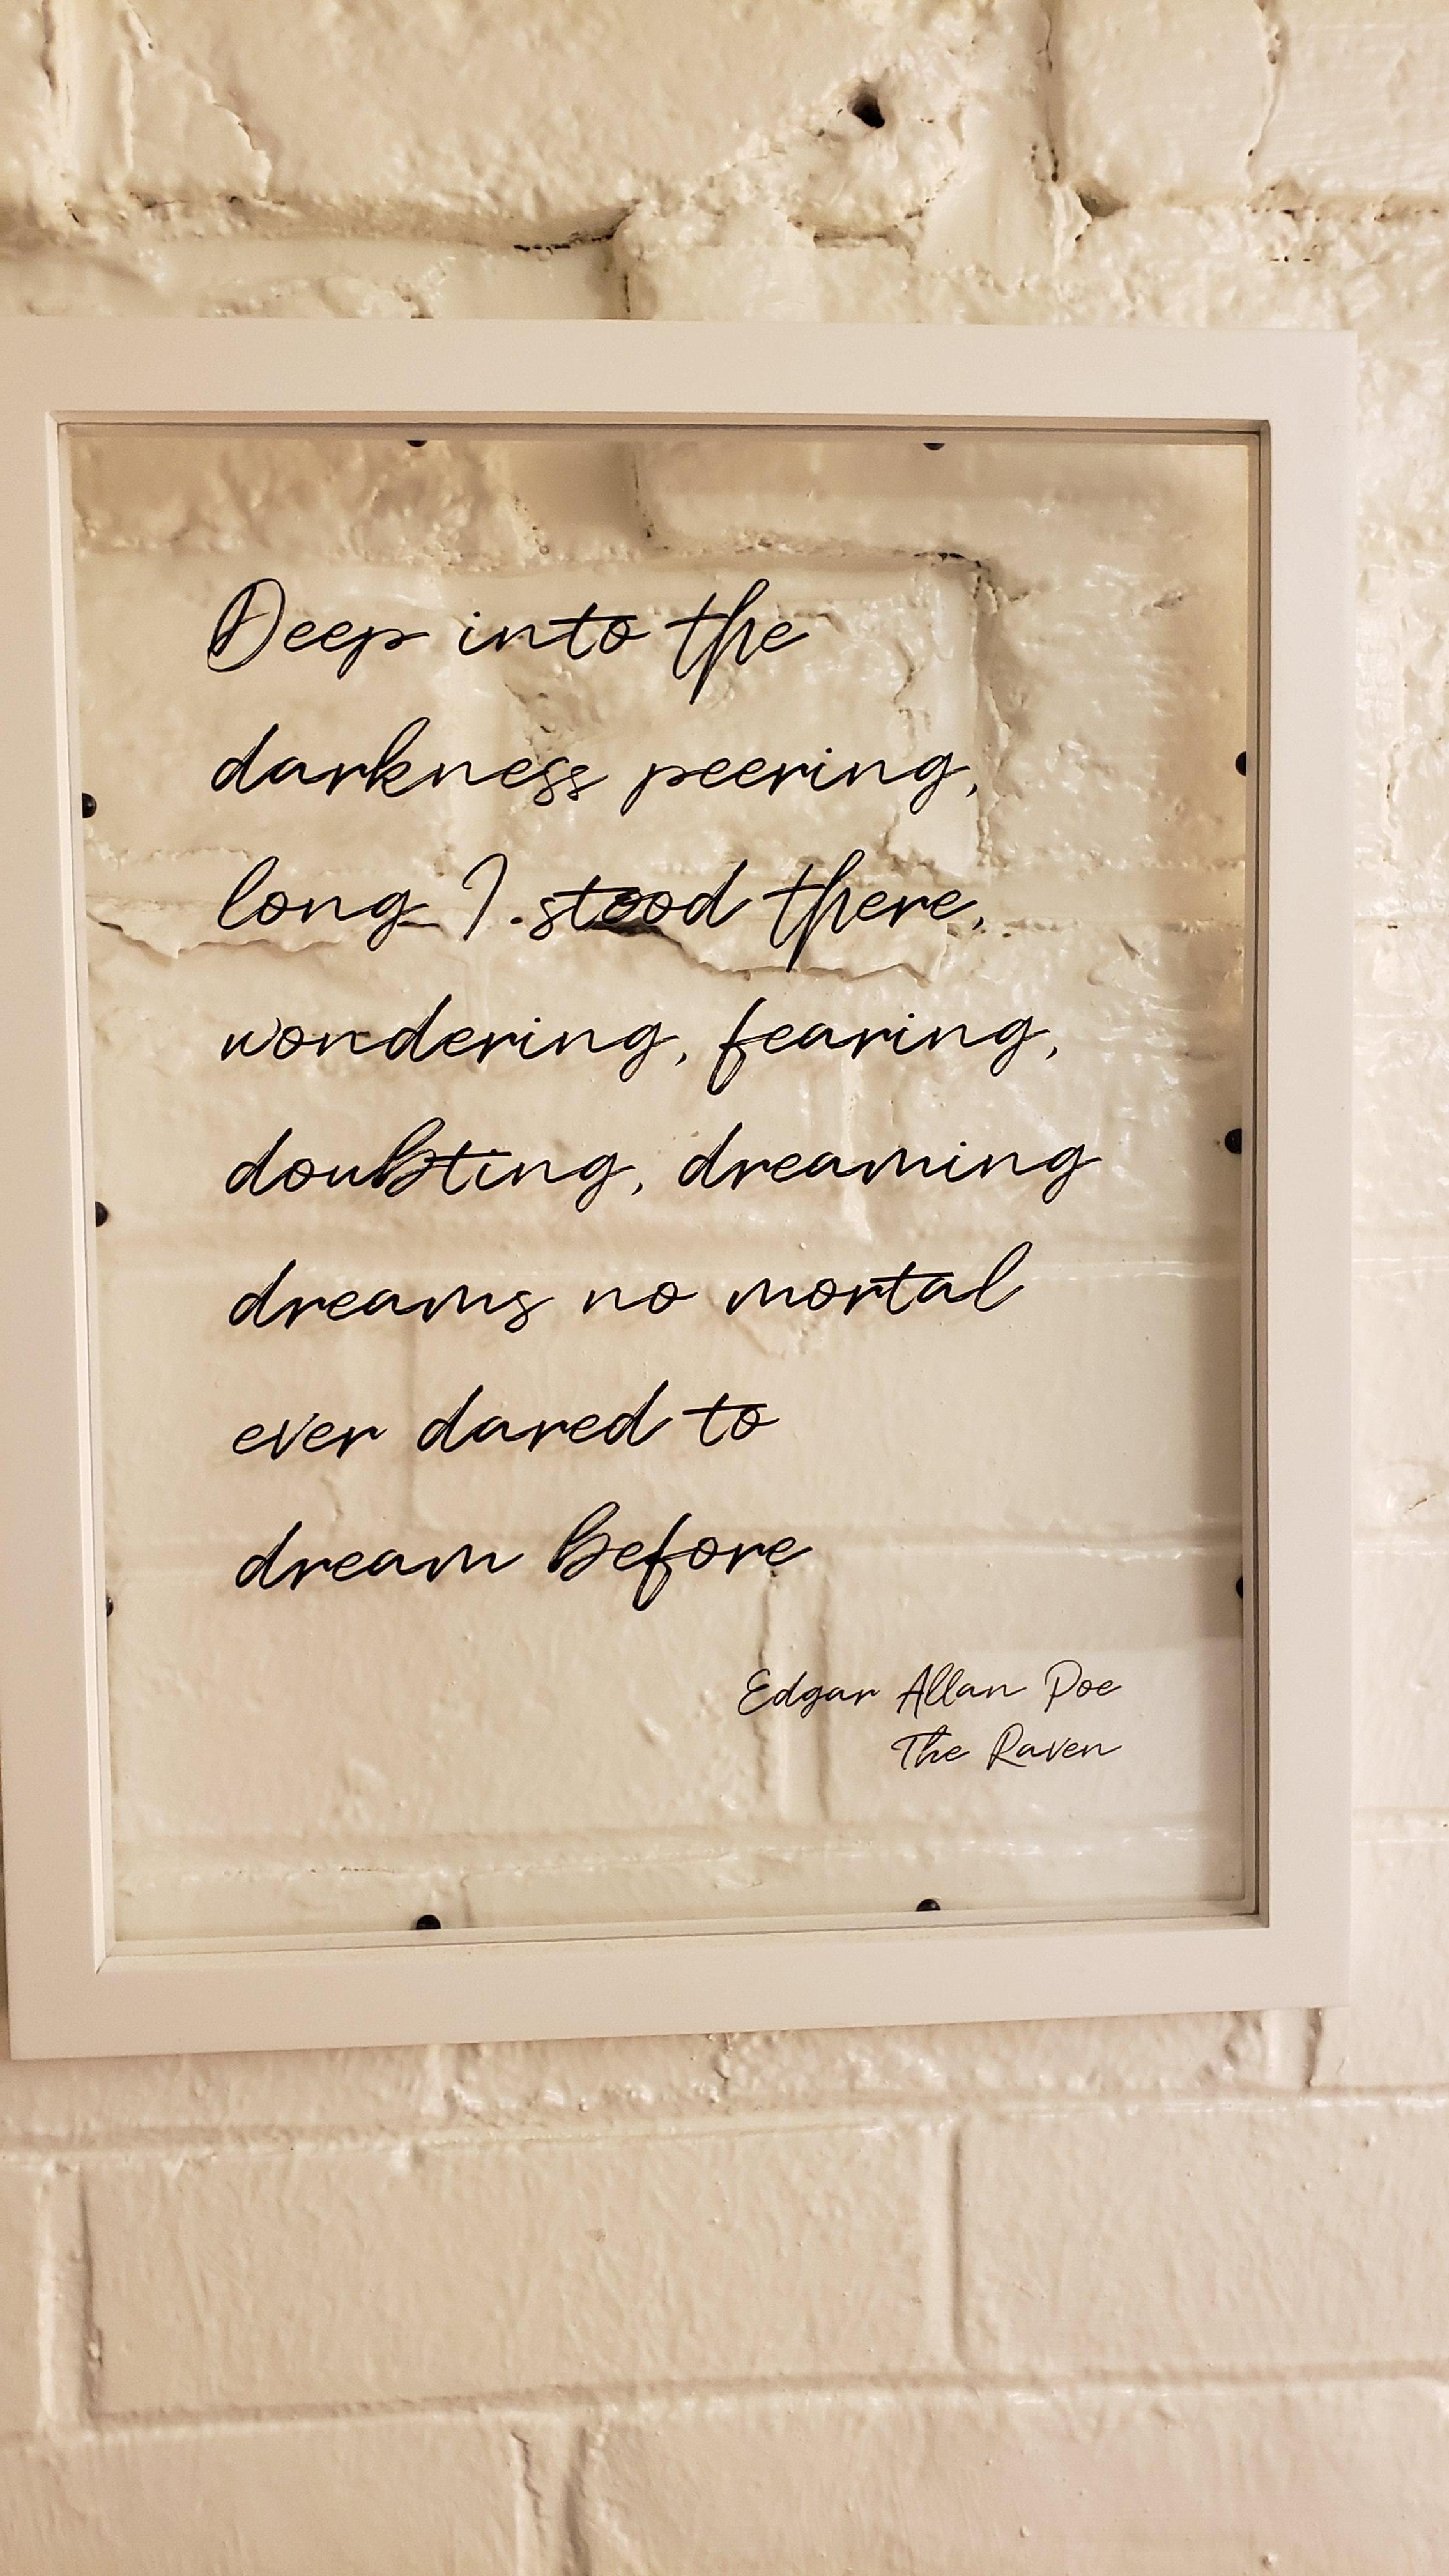 Deep into the
darkness peering,
long I stood there,
wondering, fearing,
doubting, dreaming
dreams no mortal
ever dared to
dream before
Edgar Allan Poe
The Raven